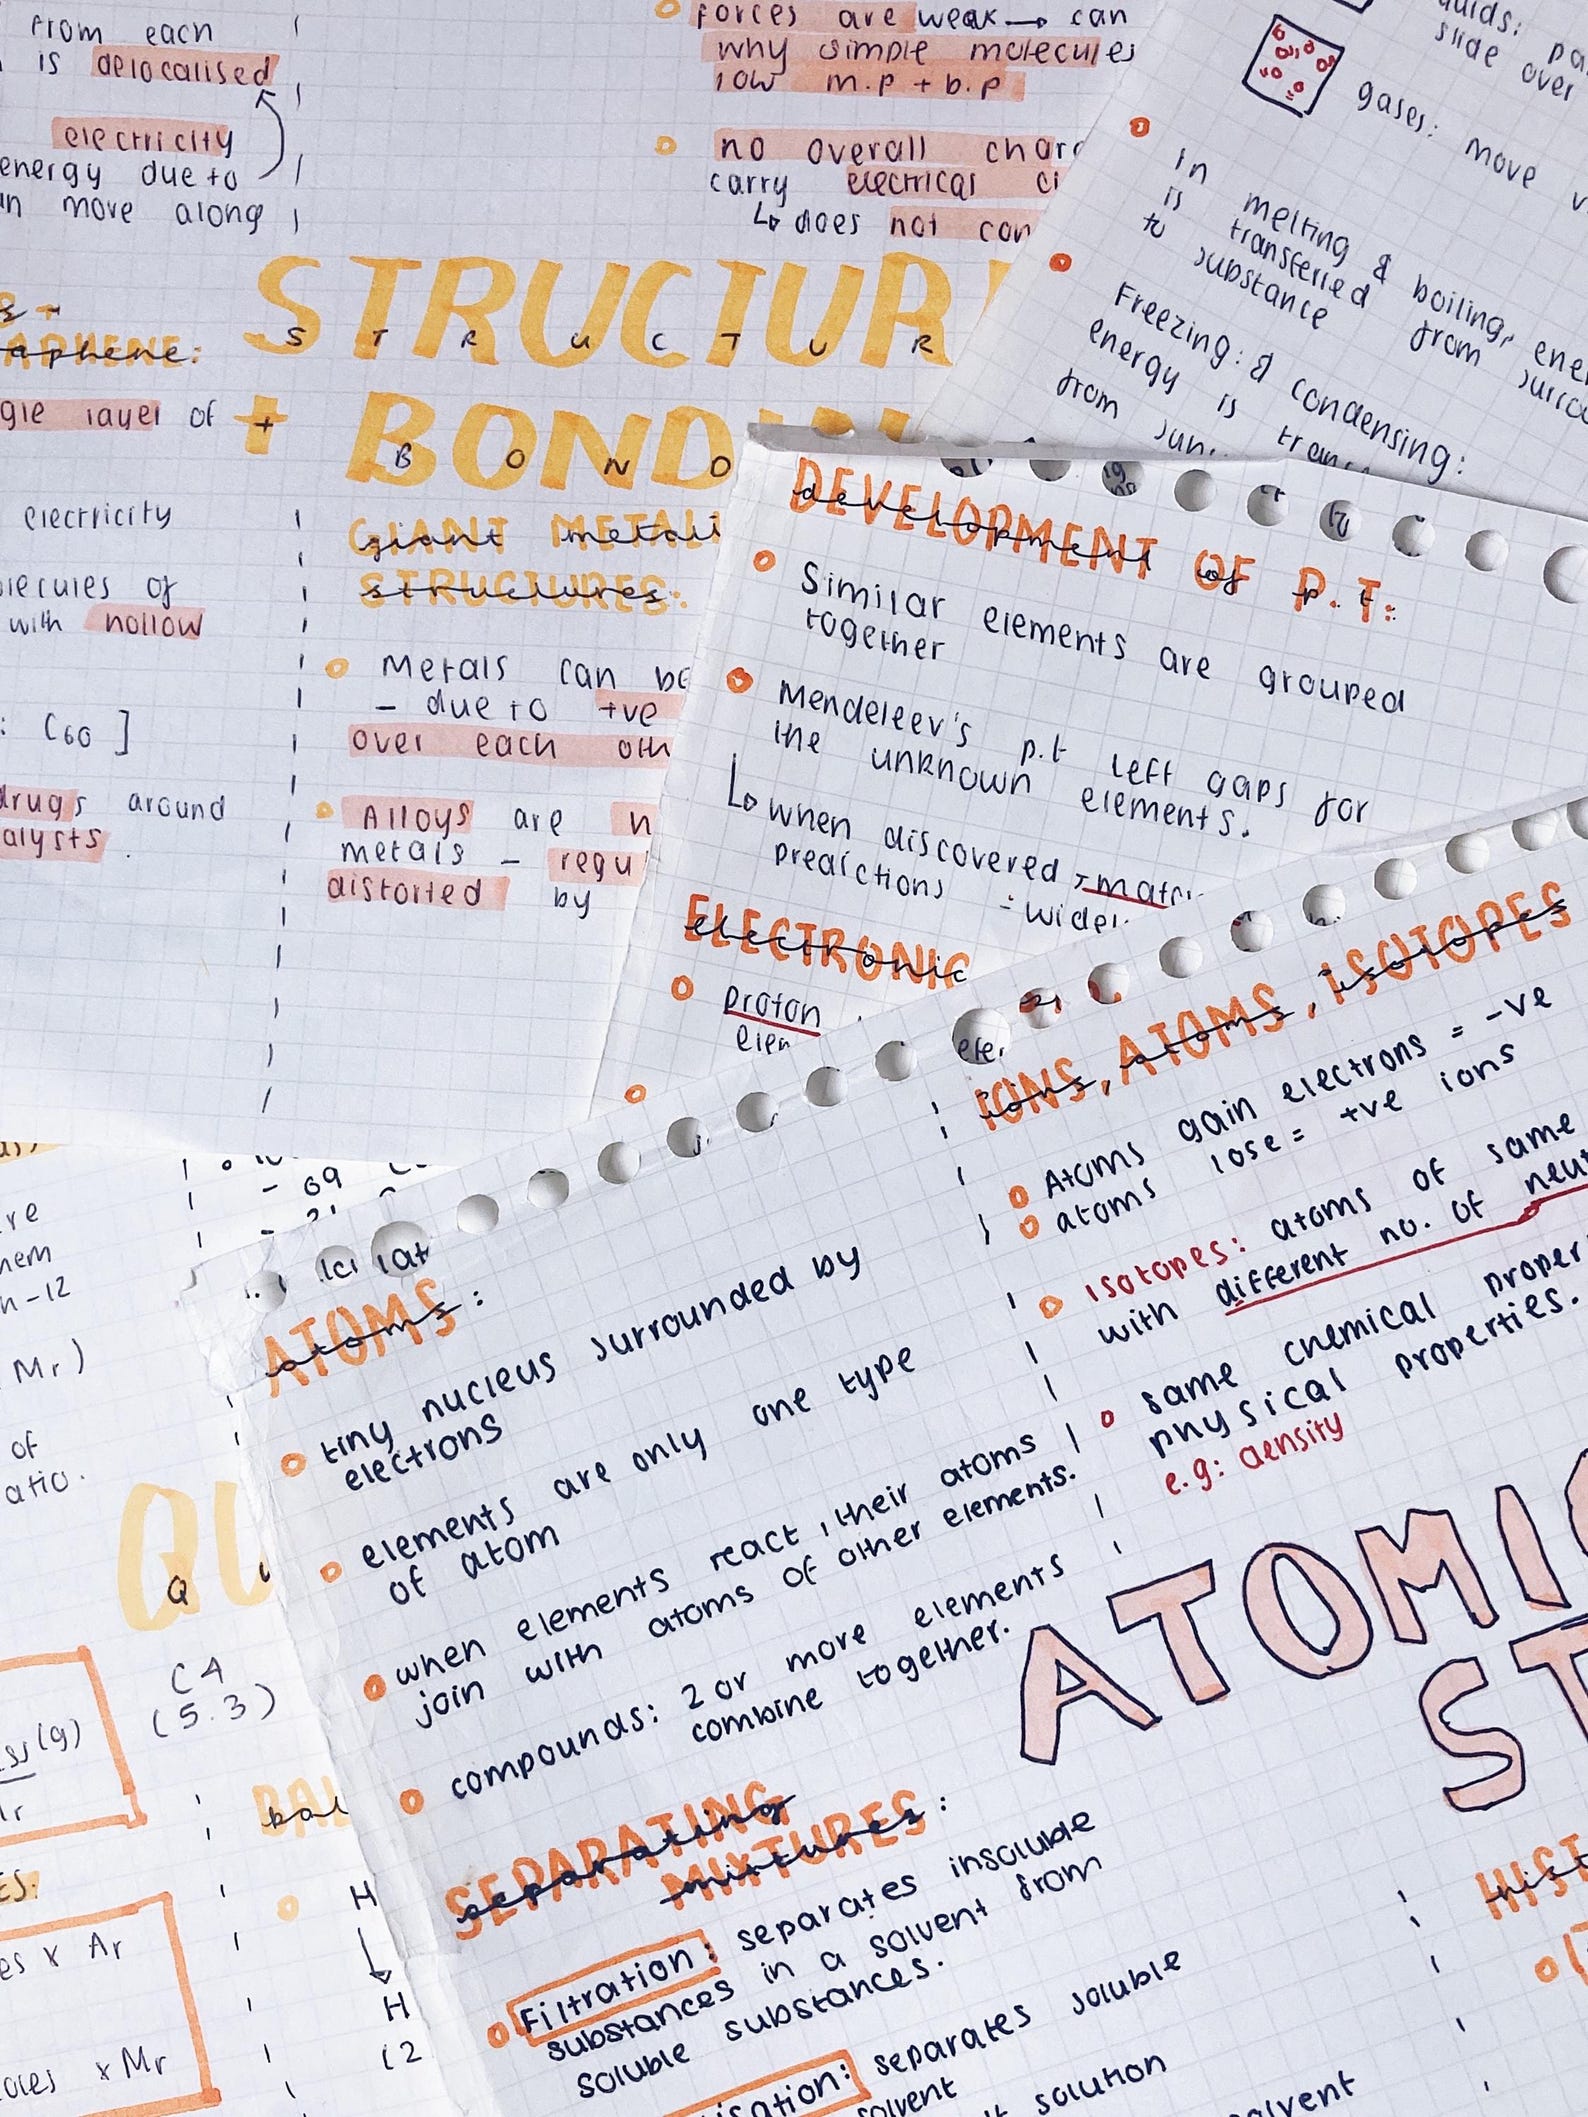 from each
is delocalised
electricity
energy due to
move along
forces are weak → can
why simple molecules
low m.p + b.p
no overall
carry electrical
↳ does not
slide over
gases: move
in melting & boiling,
is transferred from
to substance
Freezing & condensing:
energy is
from
STRUCTUR
STRUCTUR
+ BOND
+ BOND
aphene:
layer of
electricity
of
with hollow
: C60 ]
drugs around
GIANT METALI
giant metali
STRUCTURES:
structures:
Metals can be
- due to +ve
over each oth
Alloys are
metals - regu
distorted by
DEVELOPMENT OF P.T:
development of p.t:
Similar elements are grouped
together
Mendeleev's p.t left gaps for
the unknown elements.
↳ when discovered →
predictions
ELECTRONIC
electronic
proton
IONS, ATOMS, ISOTOPES
ions, atoms, isotopes
Atoms gain electrons = -ve
atoms lose = +ve ions
Isotopes: atoms of same
with different no. of neut
same chemical proper
physical properties.
e.g: density
ATOMS:
atoms:
tiny nucleus surrounded by
electrons
elements are only one type
of atom
when elements react, their atoms
join with atoms of other elements.
compounds: 2 or more elements
combine together.
ATOMIC
ST
SEPARATING
separating
MIXTURES:
mixtures:
Filtration: separates insoluble
substances in a solvent from
soluble substances.
isation: separates soluble
solvent
solution
solvent
HIST
hist
- 12
Mr)
of
QU
Q
C4
(5.3)
(g)
BAL
bal
H
↓
H
x Ar
x Mr
(2